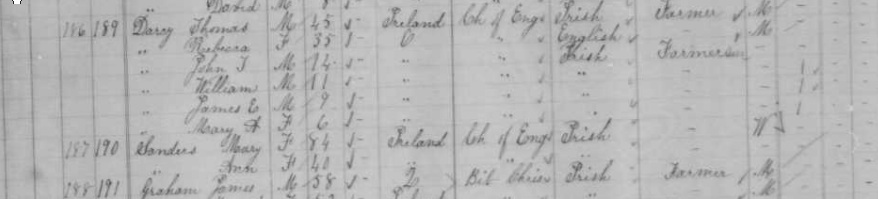 " David M
186 189 Darcy Thomas M 45 Ireland Ch of Eng Irish Farmer M
" Rebecca F 35 O " English M
" John T M 14 " " Irish Farmer Son
" William M 11 " " "
" James E M 9 " " "
" Mary A F 6 " " "
187 190 Sanders Mary F 84 Ireland Ch of Eng Irish W
" Ann F 40 " "
188 191 Graham James M 58 Q Bib Chris Irish Farmer M
M